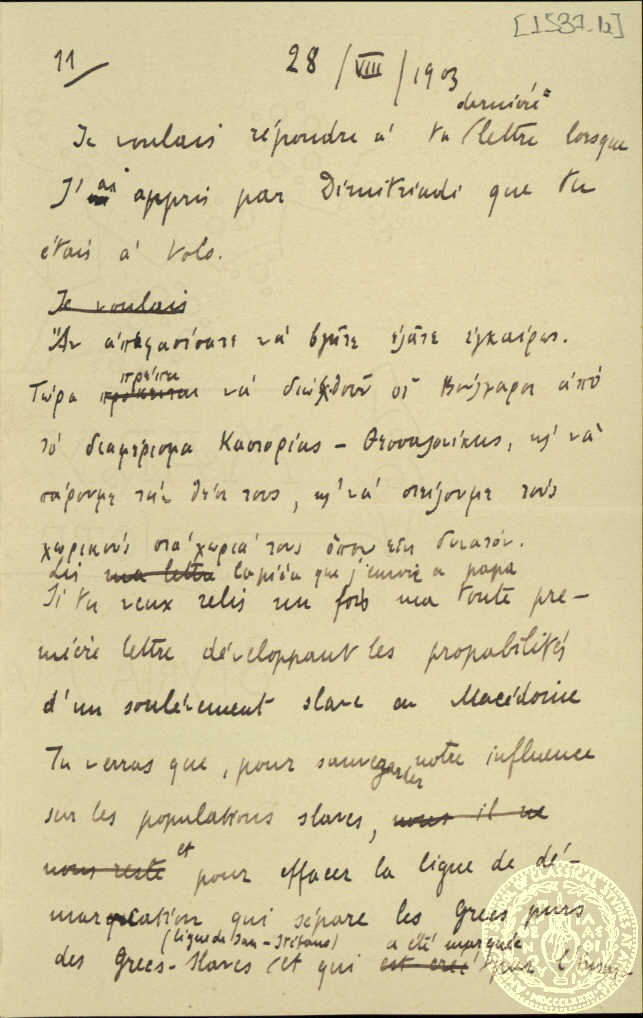 [1587.b]
11
28/VIII/1903
dernière
Je voulais répondre à ta lettre lorsque
J'ai appris par Dimitriadi que tu
étais à Volo.
Je voulais
Ἂν ἀπεφασίσατε νά βγῆτε ἐλᾶτε ἐγκαίρως.
πρέπει
Τώρα πρόκειται νά διωχθοῦν οἱ Βούλγαροι ἀπό
τό διαμέρισμα Καστορίας - Θεσσαλονίκης, κ' νά
πάρουμε τήν θέσι τους, κ' νά στείλουμε τούς
χωρικούς στά χωριά τους ὅπου εἶναι δυνατόν.
Lis ma lettre la que j'envoie a papa
Si tu veux relis un fois ma toute pre-
mière lettre développant les propabilités
d'un soulèvement slave en Macédoine
Tu verras que, pour sauvegarder notre influence
sur les populations slaves, nous il ne
nous reste et pour effacer la ligne de dé-
marcation qui sépare les Grecs purs
(ligne de San-Stefano) a été marquée
des Grecs-Slaves (et qui est créé pour